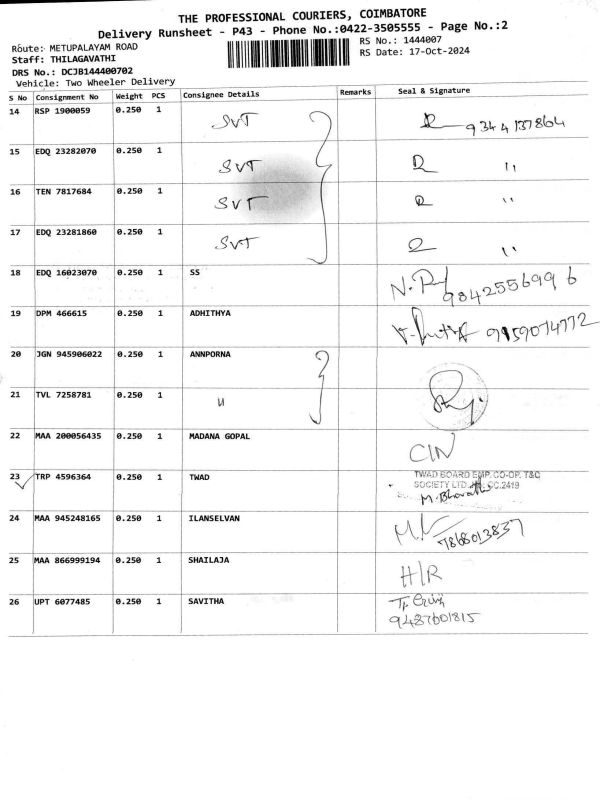 THE PROFESSIONAL COURIERS, COIMBATORE
Delivery Runsheet - P43 - Phone No.:0422-3505555 - Page No.:2
Route: METUPALAYAM ROAD
RS No.: 1444007
Staff: THILAGAVATHI
RS Date: 17-Oct-2024
DRS No.: DCJB144400702
Vehicle: Two Wheeler Delivery
S No Consignment No Weight PCS Consignee Details Remarks Seal & Signature
14 RSP 1900059 0.250 1 SVT 9344137864
15 EDQ 23282070 0.250 1 SVT "
16 TEN 7817684 0.250 1 SVT "
17 EDQ 23281860 0.250 1 SVT "
18 EDQ 16023070 0.250 1 SS 9842556996
19 DPM 466615 0.250 1 ADHITHYA 9159074772
20 JGN 945906022 0.250 1 ANNPORNA
21 TVL 7258781 0.250 1 "
22 MAA 200056435 0.250 1 MADANA GOPAL C/N
23 TRP 4596364 0.250 1 TWAD TWAD BOARD EMP. CO-OP. T&C
SOCIETY LTD. CC.2419
M. Bharathi
24 MAA 945248165 0.250 1 ILANSELVAN 7868013837
25 MAA 866999194 0.250 1 SHAILAJA H/R
26 UPT 6077485 0.250 1 SAVITHA
9487601815